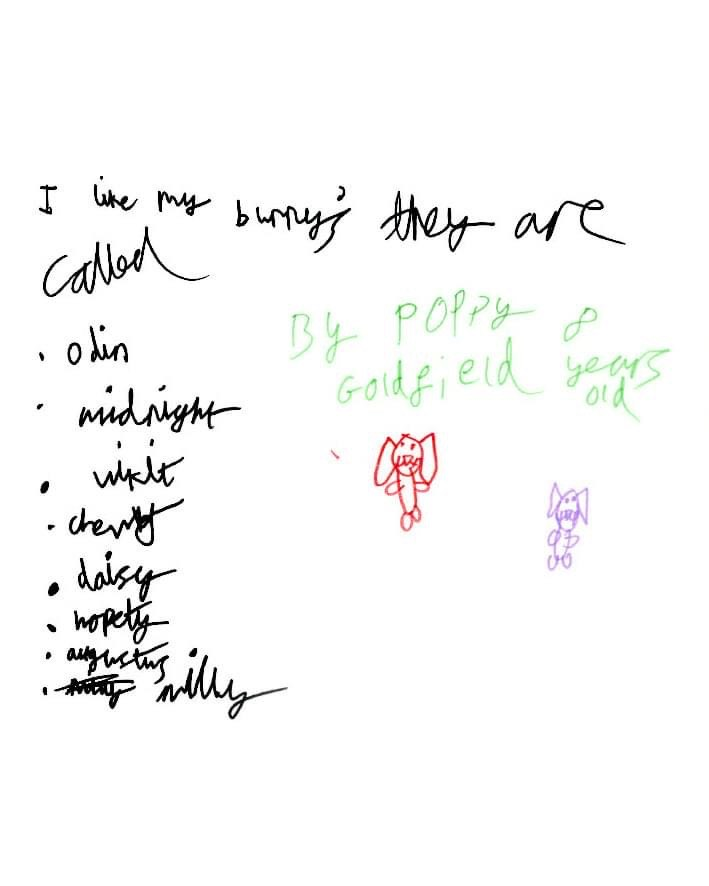 I like my bunny's they are
called
By POPPY 8
Goldfield years
old
• odin
• midnight
•
•
• daisy
• hopety
• augustus
• milly